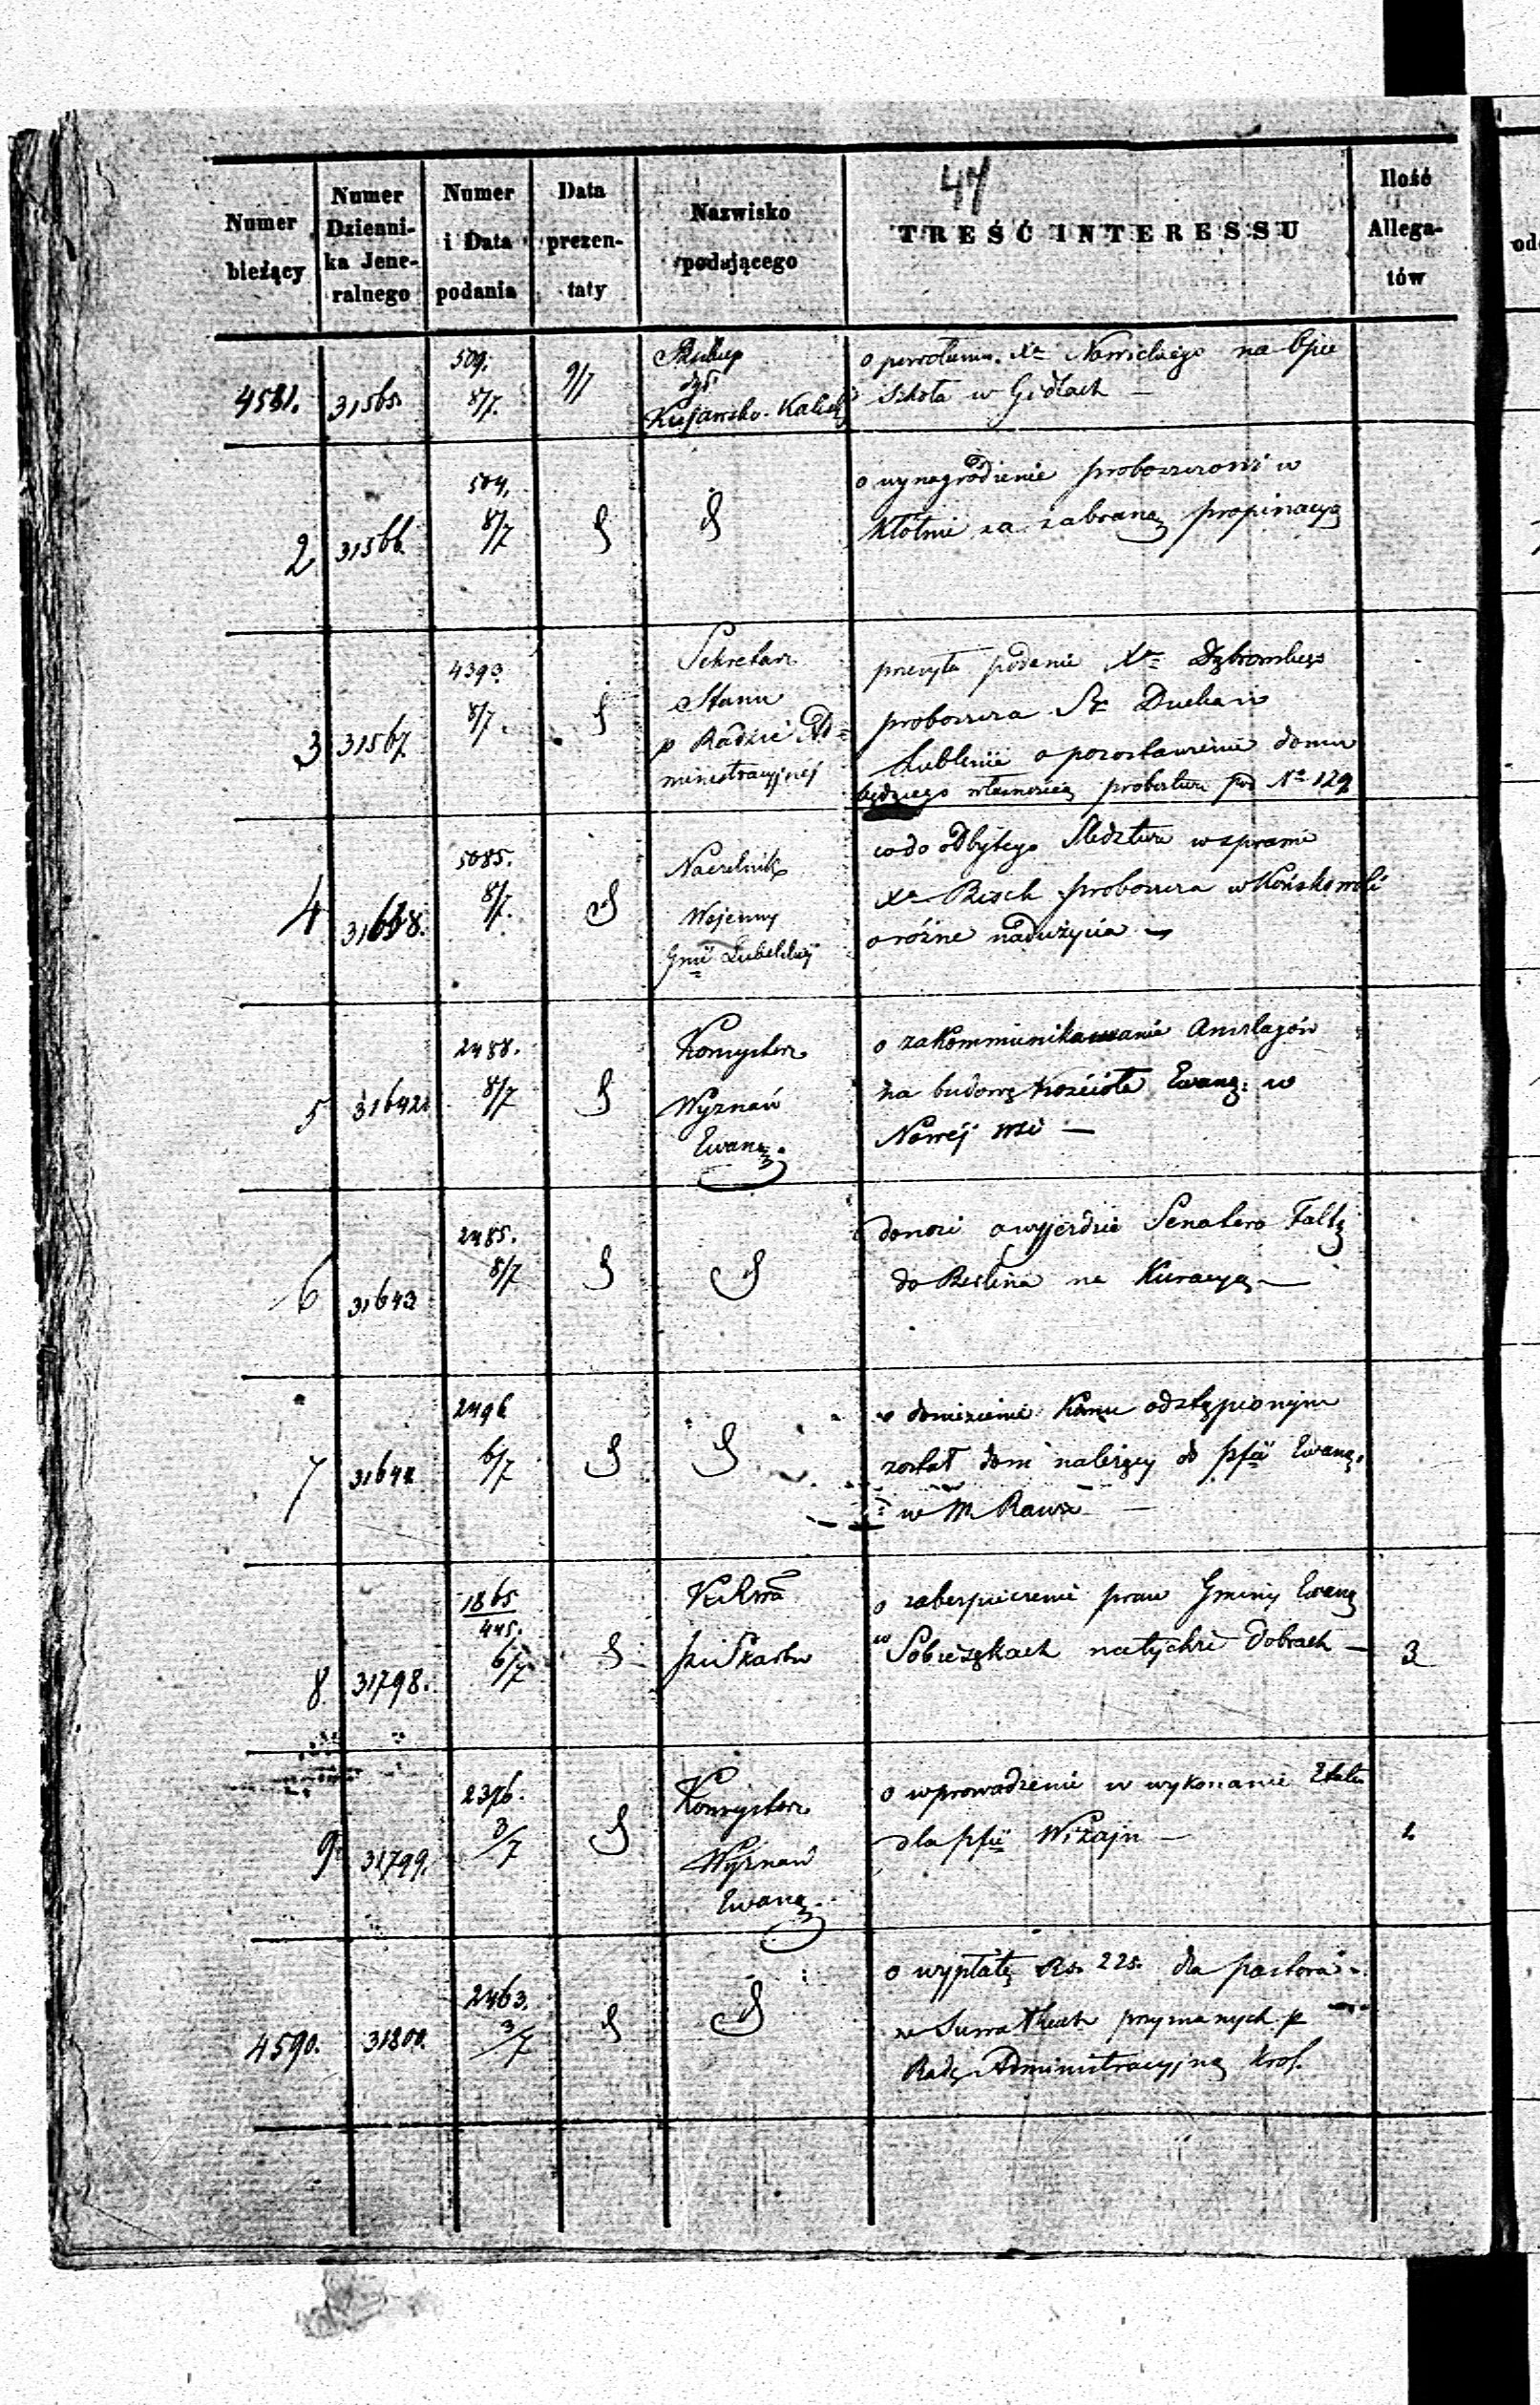 47
Numer bieżący
Numer Dzienni-ka Jene-ralnego
Numer i Data podania
Data prezen-taty
Nazwisko podającego
TREŚĆ INTERESSU
Ilość Allega-tów
4581. 31565. 509. 8/7. 9/7
Biskup
dyi
Kujawsko-Kalisk
o powołaniu Xa Nowickiego na Opie
Szkoła w Gidlach —
2 31566 504. 8/7
o wynagrodzenie proboszczowi w
Kłótnie za zabraną propinacyą
3 31567 4393. 8/7.
Sekretarz
Stanu
p Radzie Ad=
ministracyjnej
przesyła podanie Xa Dąbrowskiego
proboszcza Sgo Ducha w
Lublinie o pozostawienie domu
będącego własnością probostwa pod No 129
4 5085. 8/7.
Naczelnik
Wojenny
Gnii Lubelskiej
co do odbytego Śledztwa w sprawie
Xa proboszcza w Końskowoli
o różne nadużycia —
5 31642 2488. 8/7
Konsystorz
Wyznań
Ewang.
o zakommunikowanie Anszlagów
na budowę Kościoła Ewang: w
Nowej wsi —
6 31643 2485. 8/7
donosi o wyjeździe Senatora
do Berlina na Kuracyą —
7 2496 6/7
o doniesienie Komu odstąpionym
został dom należący do pfii Ewang.
w M Rawie
8 31798. 1865/445. 6/7
Skarbu
o zabezpieczenie praw Gminy Ewang
w Sobieszękach na tychże Dobrach — 3
9 31799. 2396. 3/7
Konsystorz
Wyznań
Ewang.
o wprowadzenie w wykonanie Etatu
dla pfii Wiżajn —
4590. 31800. 2463. 3/7
o wypłatę Rs. 225. dla pastora
w Suwałkach przyznanych p
Radę Administracyjną Król.